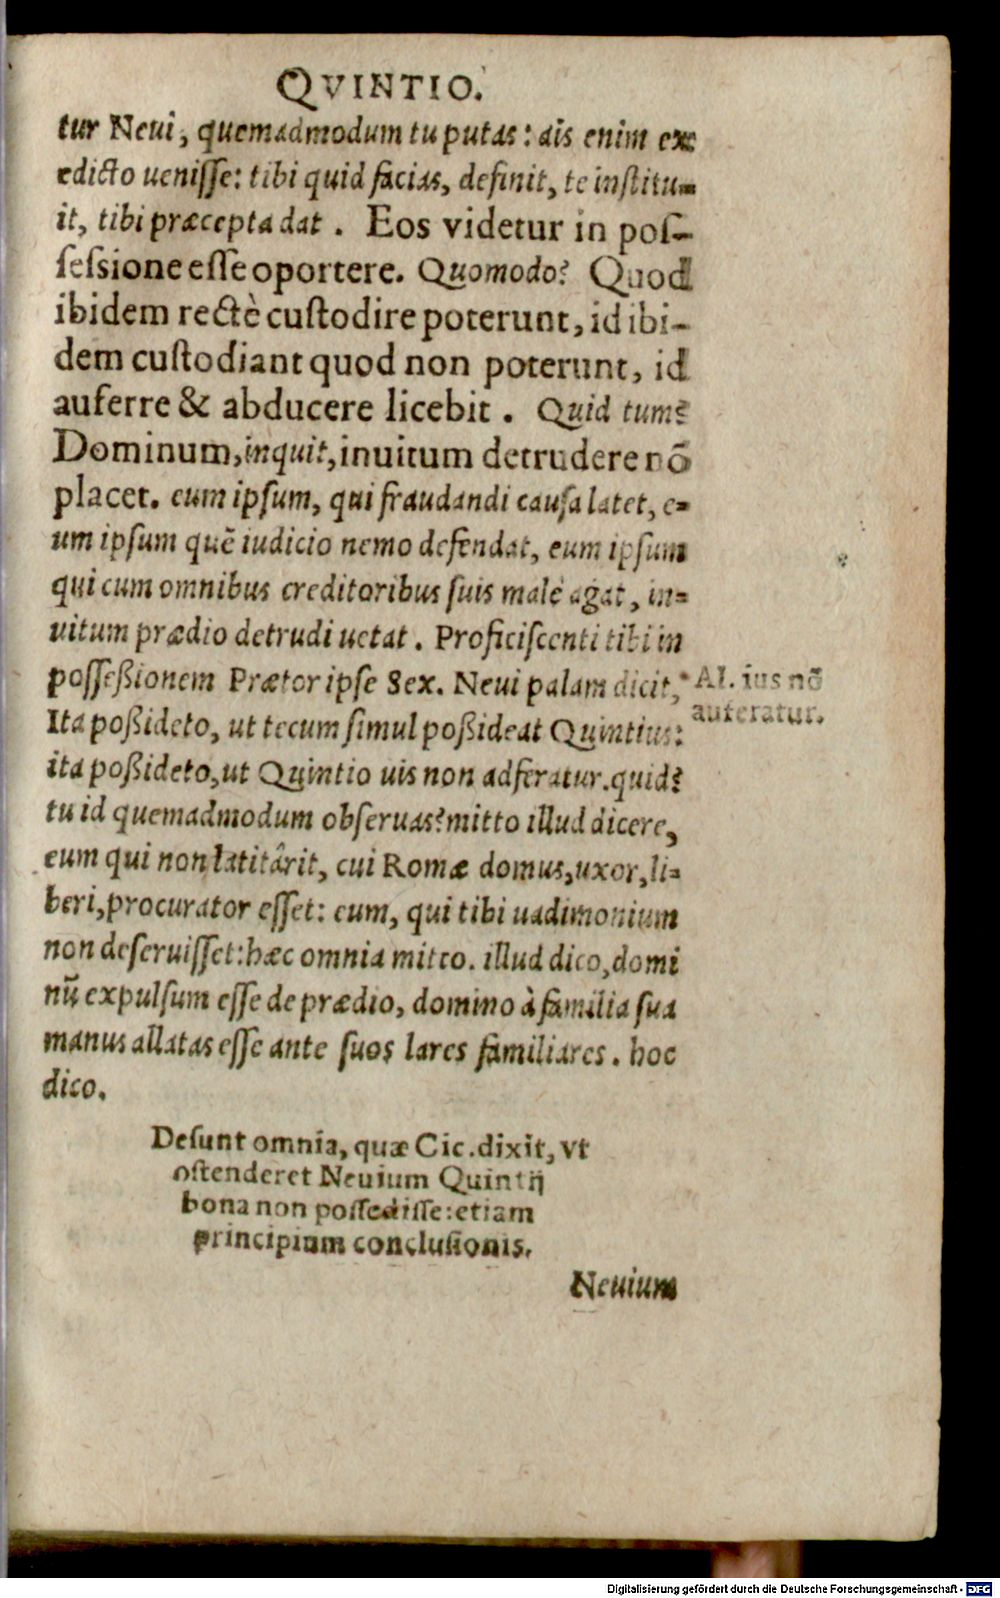 QVINTIO.
tur Neui, quemadmodum tu putas: ais enim ex
edicto uenisse: tibi quid facias, definit, te institu-
it, tibi præcepta dat. Eos videtur in pos-
sessione esse oportere. Quomodo? Quod
ibidem rectè custodire poterunt, id ibi-
dem custodiant quod non poterunt, id
auferre & abducere licebit. Quid tum?
Dominum, inquit, inuitum detrudere nō
placet. eum ipsum, qui fraudandi causa latet, e-
um ipsum quē iudicio nemo defendat, eum ipsum
qui cum omnibus creditoribus suis malè agat, in-
uitum prædio detrudi uetat. Proficiscenti tibi in
possessionem Prætor ipse Sex. Neui palam dicit,*
Al. ius nō
auferatur.
Ita possideto, ut tecum simul possideat Quintius:
ita possideto, ut Quintio uis non adferatur. quid?
tu id quemadmodum obseruas? mitto illud dicere,
eum qui non latitârit, cui Romæ domus, uxor, li-
beri, procurator esset: eum, qui tibi uadimonium
non deseruisset: hæc omnia mitto. illud dico, domi
nū expulsum esse de prædio, domino à familia sua
manus allatas esse ante suos lares familiares. hoc
dico.
Desunt omnia, quæ Cic. dixit, vt
ostenderet Neuium Quintij
bona non possedisse: etiam
principium conclusionis.
Neuium
Digitalisierung gefördert durch die Deutsche Forschungsgemeinschaft - DFG